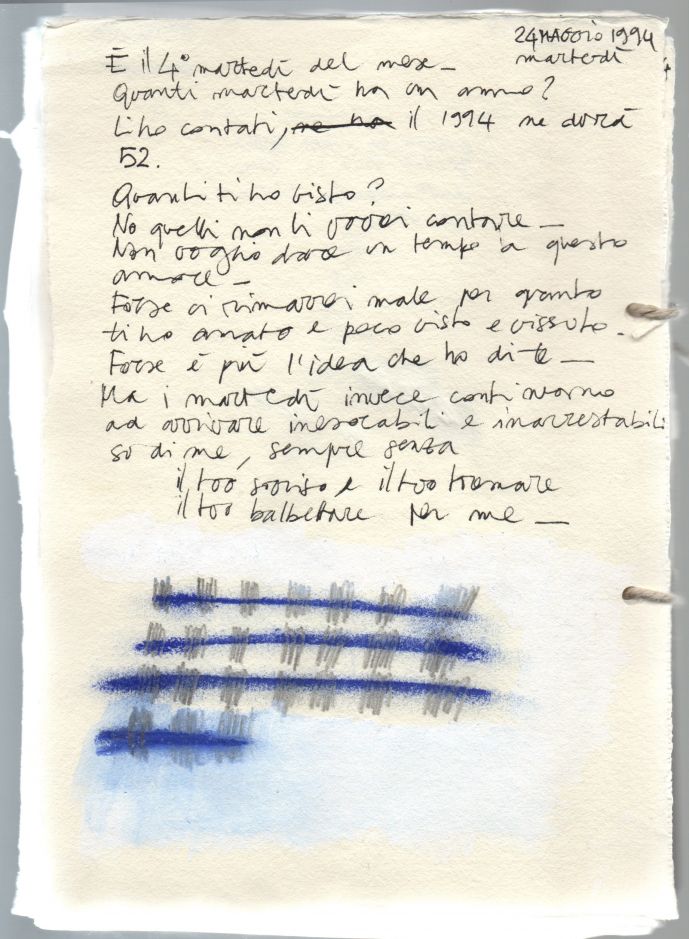 24 MAGGIO 1994
martedì
È il 4° martedì del mese_
Quanti martedì ha un anno?
Li ho contati, ne ha il 1994 ne dovrà
52.
Quanti ti ho visto?
No quelli non li vorrei contare_
Non voglio dare un tempo a questo
amore_
Forse ci rimarrei male per quanto
ti ho amato e poco visto e vissuto.
Forse è più l'idea che ho di te_
Ma i martedì invece continuano
ad arrivare inesorabili e inarrestabili
su di me, sempre senza
il tuo sorriso e il tuo tremare
il tuo balbettare per me_